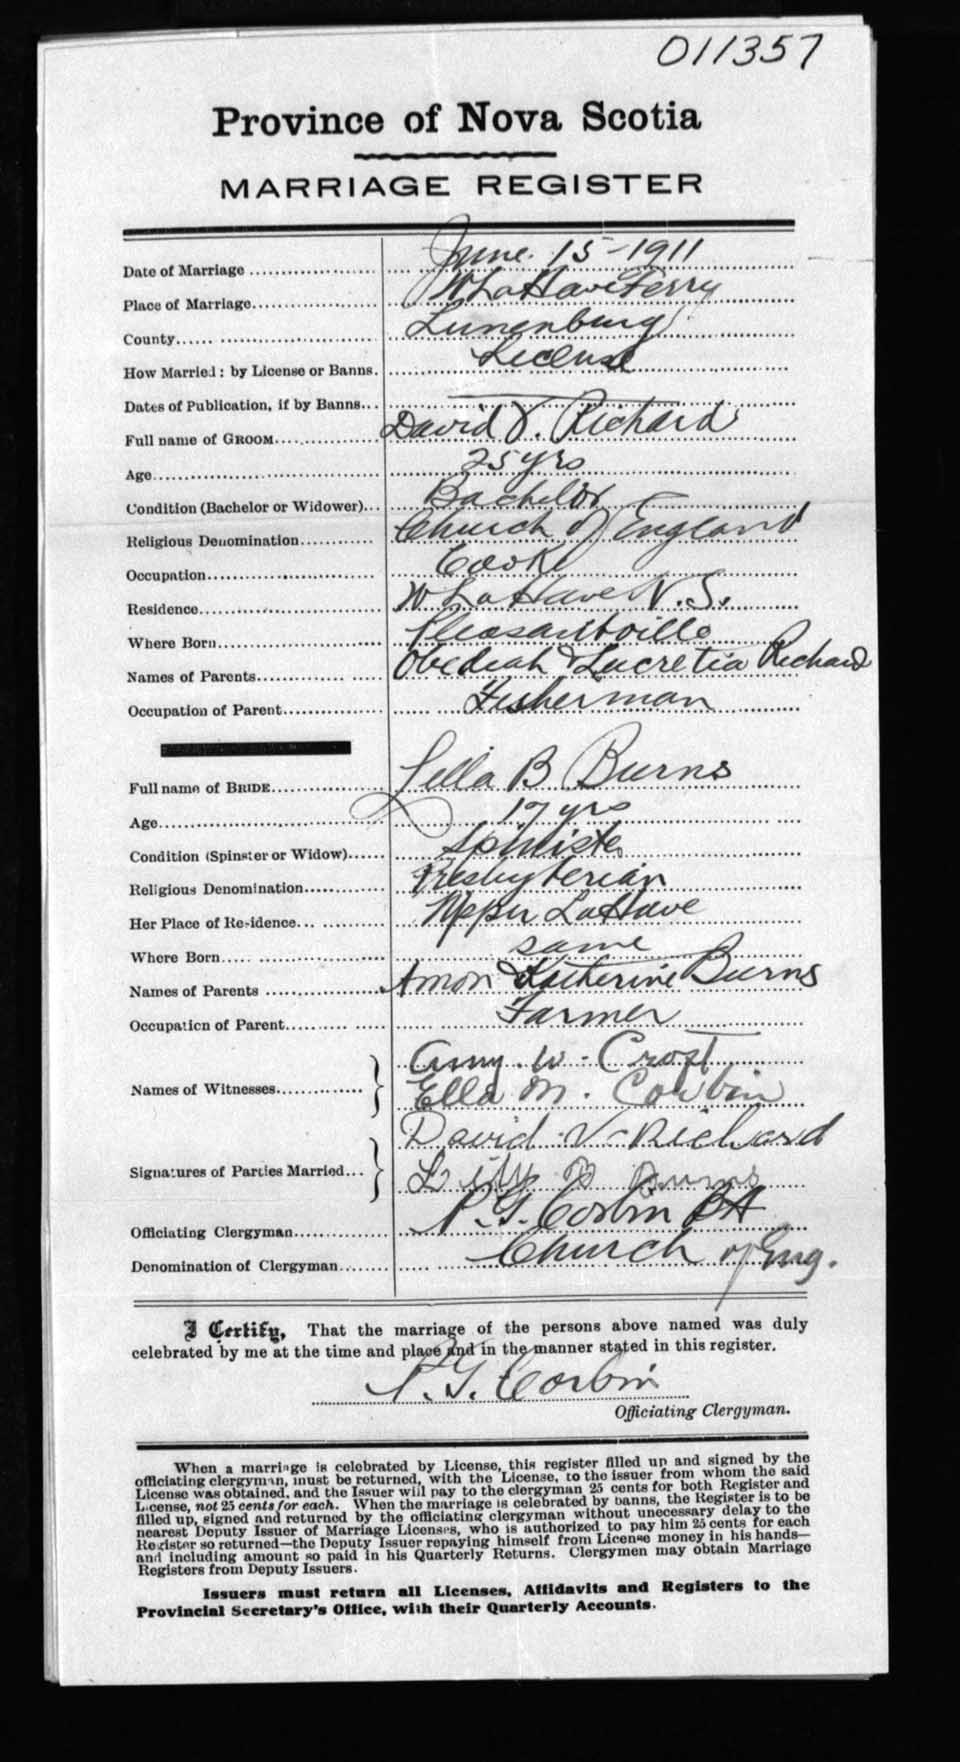 011357
Province of Nova Scotia
MARRIAGE REGISTER
Date of Marriage June. 15-1911
Place of Marriage W LaHave Ferry
County Lunenburg
How Married: by License or Banns. License
Dates of Publication, if by Banns
Full name of GROOM David V. Richard
Age 25 yrs
Condition (Bachelor or Widower) Bachelor
Religious Denomination Church of England
Occupation Cook
Residence W LaHave N.S.
Where Born Pleasantville
Names of Parents Obediah & Lucretia Richard
Occupation of Parent Fisherman
Full name of BRIDE B Burns
Age 17 yrs
Condition (Spinster or Widow) Spinster
Religious Denomination Presbyterian
Her Place of Residence Upper LaHave
Where Born same
Names of Parents Amon & Katherine Burns
Occupation of Parent Farmer
Names of Witnesses Amy. W. Croft
Ella M. Corbin
Signatures of Parties Married David V. Richard
B Burns
Officiating Clergyman P. G. Corbin BA
Denomination of Clergyman Church of Eng.
I Certify, That the marriage of the persons above named was duly
celebrated by me at the time and place and in the manner stated in this register.
P. G. Corbin
Officiating Clergyman.
When a marriage is celebrated by License, this register filled up and signed by the
officiating clergyman, must be returned, with the License, to the issuer from whom the said
License was obtained, and the Issuer will pay to the clergyman 25 cents for both Register and
License, not 25 cents for each. When the marriage is celebrated by banns, the Register is to be
filled up, signed and returned by the officiating clergyman without unecessary delay to the
nearest Deputy Issuer of Marriage Licenses, who is authorized to pay him 25 cents for each
Register so returned—the Deputy Issuer repaying himself from License money in his hands—
and including amount so paid in his Quarterly Returns. Clergymen may obtain Marriage
Registers from Deputy Issuers.
Issuers must return all Licenses, Affidavits and Registers to the
Provincial Secretary's Office, with their Quarterly Accounts.